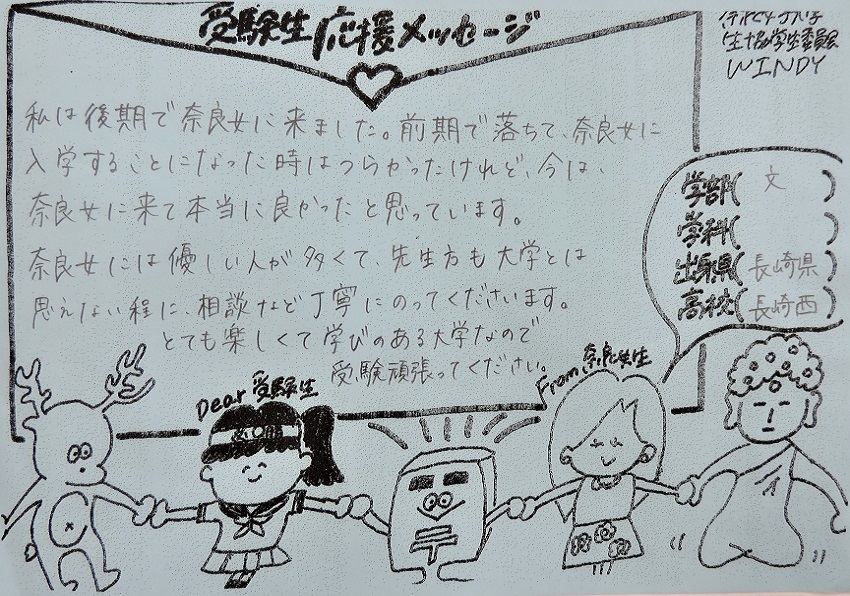 受験生応援メッセージ
生協学生委員会
WINDY
私は後期で奈良女に来ました。前期で落ちて、奈良女に
入学することになった時はつらかったけれど、今は、
奈良女に来て本当に良かったと思っています。
奈良女には優しい人が多くて、先生方も大学とは
思えない程に、相談など丁寧にのってくださいます。
とても楽しくて学びのある大学なので
受験頑張ってください。
学部(文)
学科( )
出身県(長崎県)
高校(長崎西)
Dear 受験生
From 奈良女生
必勝
〒